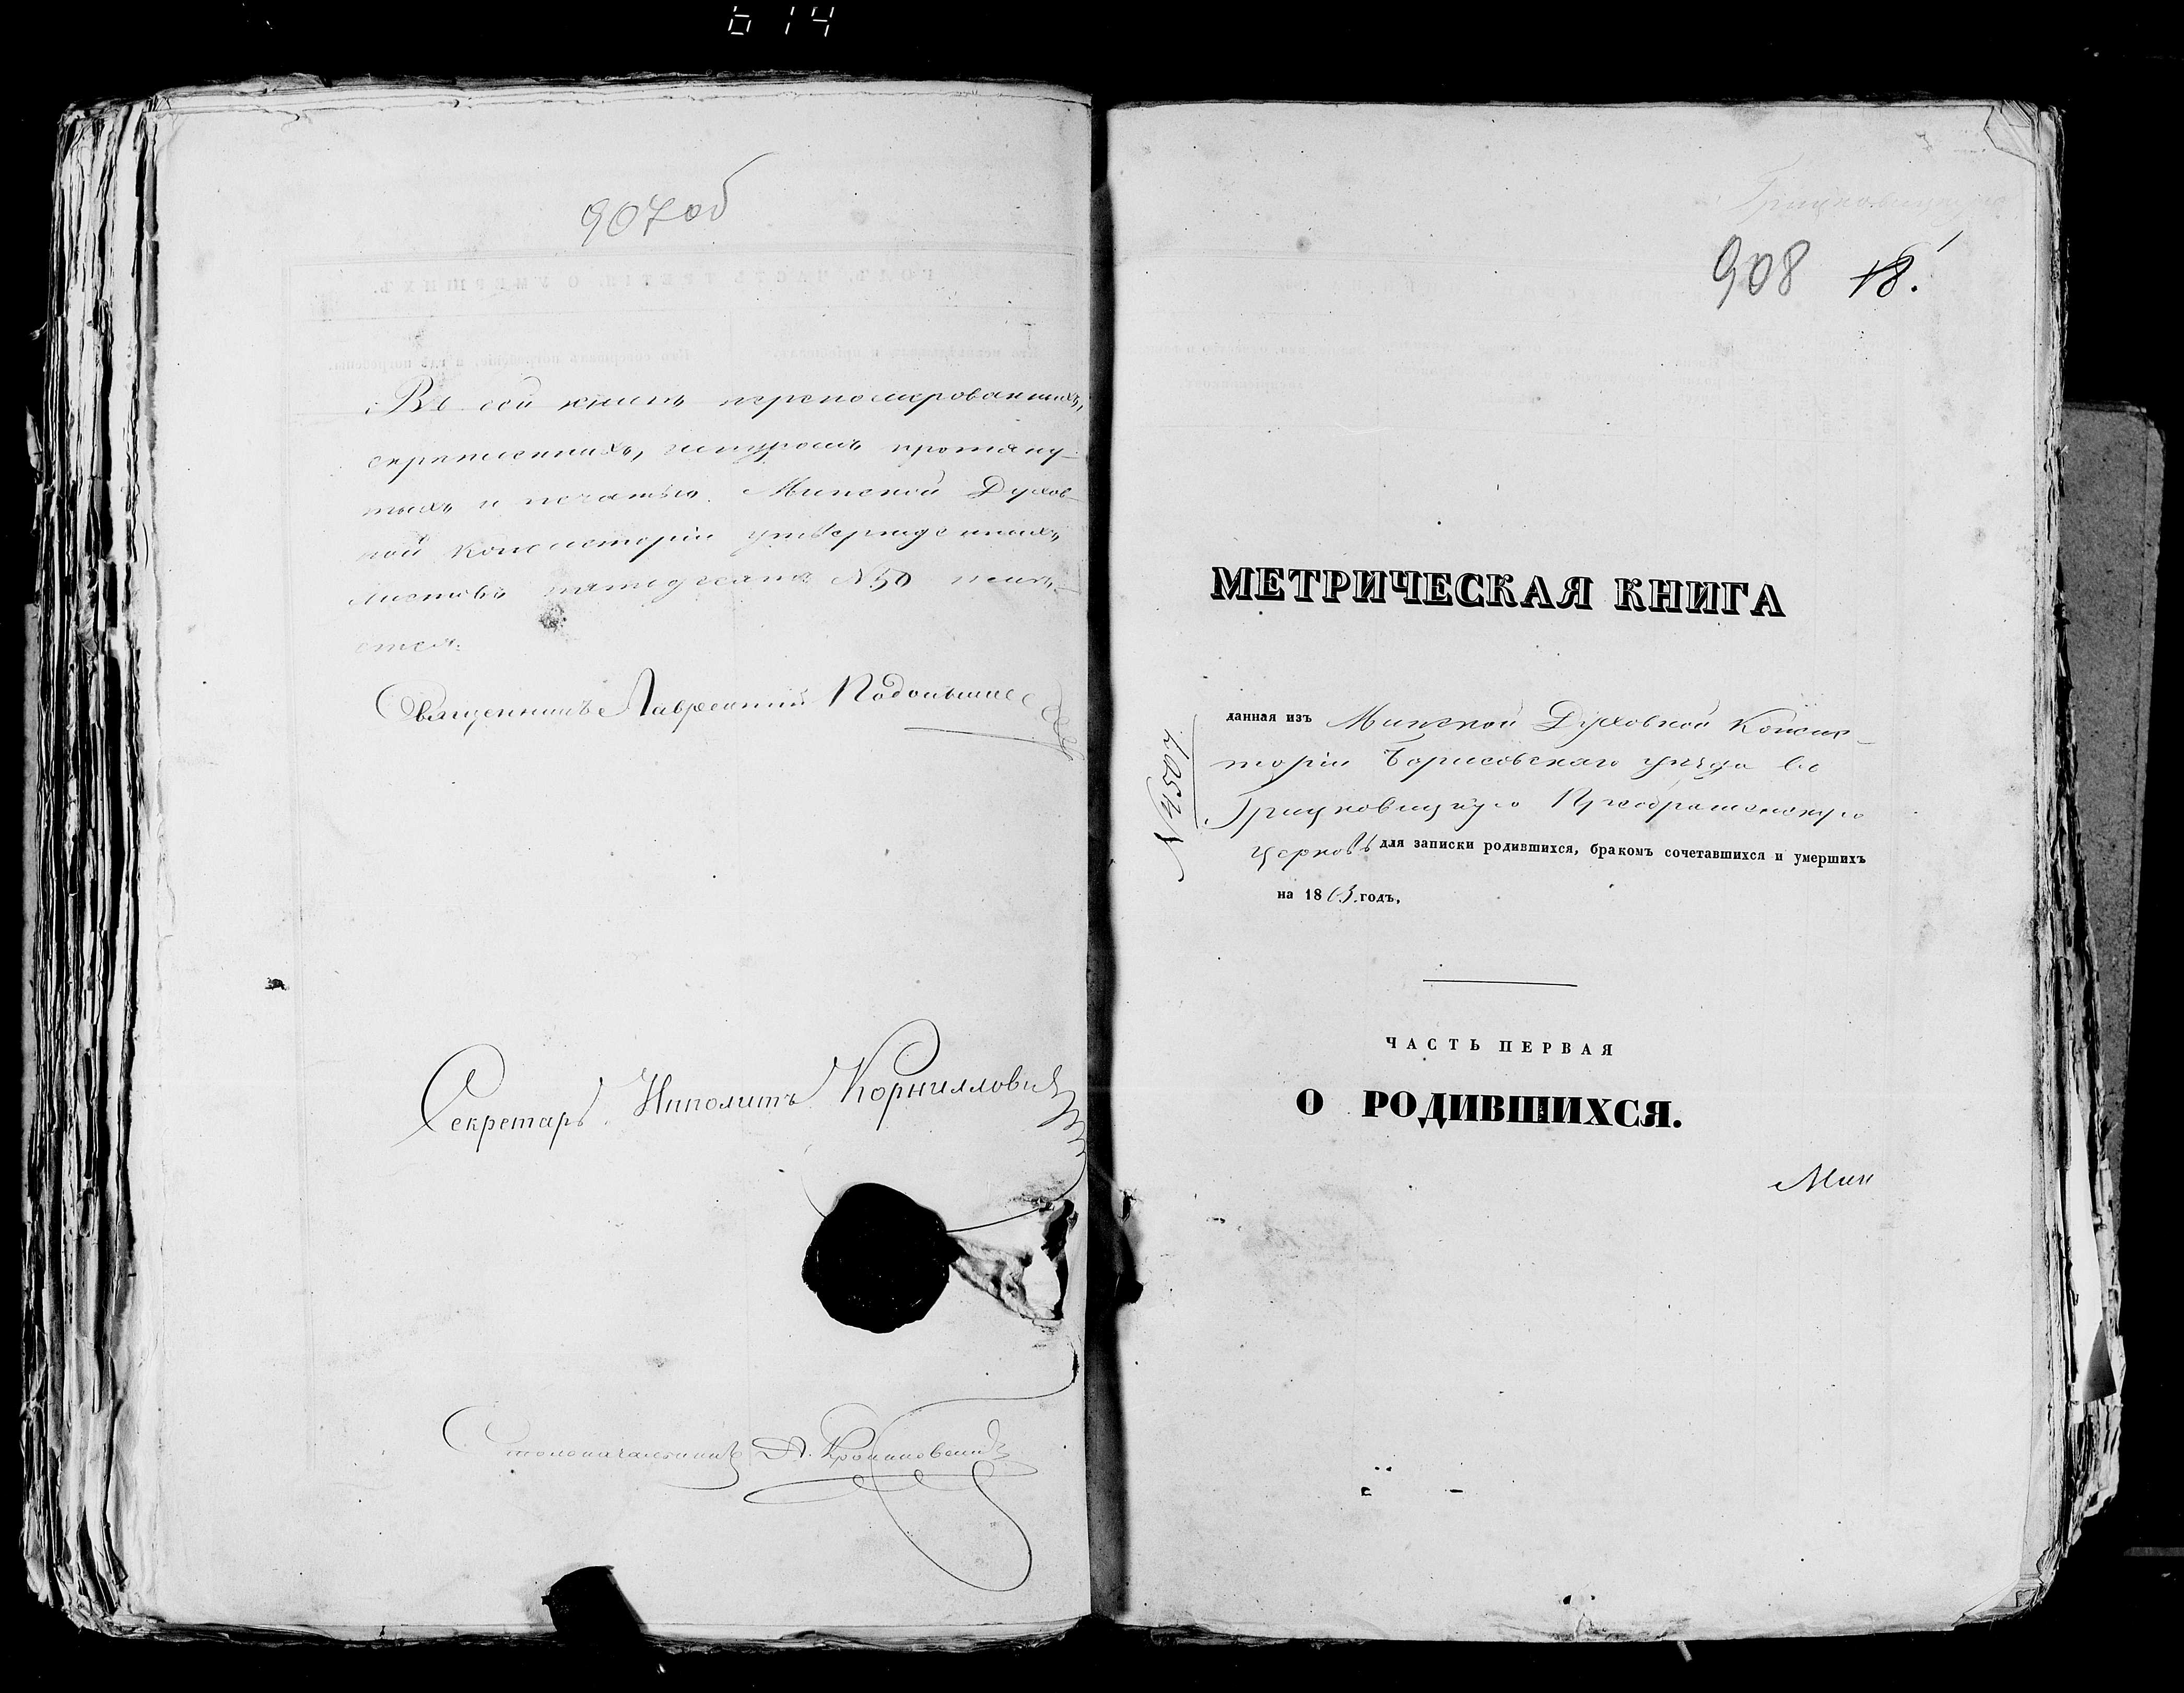 614
907 об
Въ сей книгѣ перенумерованныхъ,
скрѣпленныхъ, шнуромъ протяну-
тыхъ и печатью Минской Духов-
ной Консисторіи утвержденныхъ
листовъ пятьдесятъ № 50 имѣ-
ется.
Священникъ Лаврентій
Секретарь Ипполитъ Корниловичъ
Столоначальникъ
Грицковицкую
908 18.
МЕТРИЧЕСКАЯ КНИГА
данная изъ Минской Духовной Консис-
торіи Борисовскаго уѣзда въ
Грицковицкую Преображенскую
церковь для записки родившихся, бракомъ сочетавшихся и умершихъ
на 1863 годъ.
№ 4507
ЧАСТЬ ПЕРВАЯ
О РОДИВШИХСЯ.
Мин